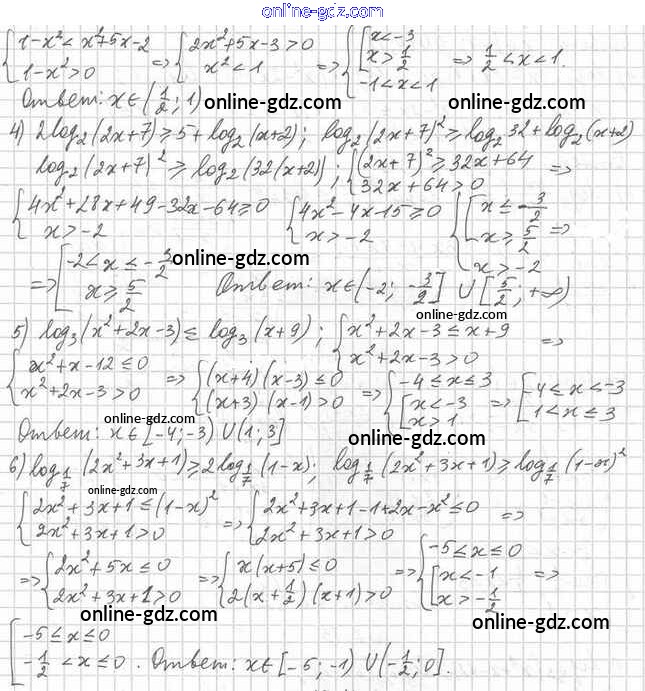 online-gdz.com
{1-x²<x²+5x-2 {2x²+5x-3>0 {[x<-3
1-x²>0 => x²<1 => x>1/2 => 1/2<x<1.
-1<x<1
Ответ: x∈(1/2; 1) online-gdz.com online-gdz.com
4) 2log₂(2x+7)≥5+log₂(x+2); log₂(2x+7)²≥log₂32+log₂(x+2)
log₂(2x+7)²≥log₂(32(x+2)); {(2x+7)²≥32x+64 =>
32x+64>0
{4x²+28x+49-32x-64≥0 {4x²-4x-15≥0 {[x≤-3/2
x>-2 x>-2 x≥5/2 =>
x>-2
=> [-2<x≤-3/2 online-gdz.com
x≥5/2 Ответ: x∈(-2; -3/2] ∪ [5/2; +∞)
online-gdz.com
5) log₃(x²+2x-3)≤log₃(x+9); {x²+2x-3≤x+9 =>
x²+2x-3>0
{x²+x-12≤0 => {(x+4)(x-3)≤0 => {-4≤x≤3 => [-4≤x<-3
x²+2x-3>0 (x+3)(x-1)>0 [x<-3 1<x≤3
x>1
online-gdz.com online-gdz.com
Ответ: x∈[-4;-3) ∪ (1;3]
6) log_1/7 (2x²+3x+1)≥2log_1/7 (1-x); log_1/7 (2x²+3x+1)≥log_1/7 (1-x)²
online-gdz.com
{2x²+3x+1≤(1-x)² => {2x²+3x+1-1+2x-x²≤0 =>
2x²+3x+1>0 2x²+3x+1>0
=> {2x²+5x≤0 => {x(x+5)≤0 => {-5≤x≤0
2x²+3x+1>0 2(x+1/2)(x+1)>0 [x<-1 =>
x>-1/2
online-gdz.com online-gdz.com
[-5≤x≤0
-1/2<x≤0. Ответ: x∈[-5; -1) ∪ (-1/2; 0].